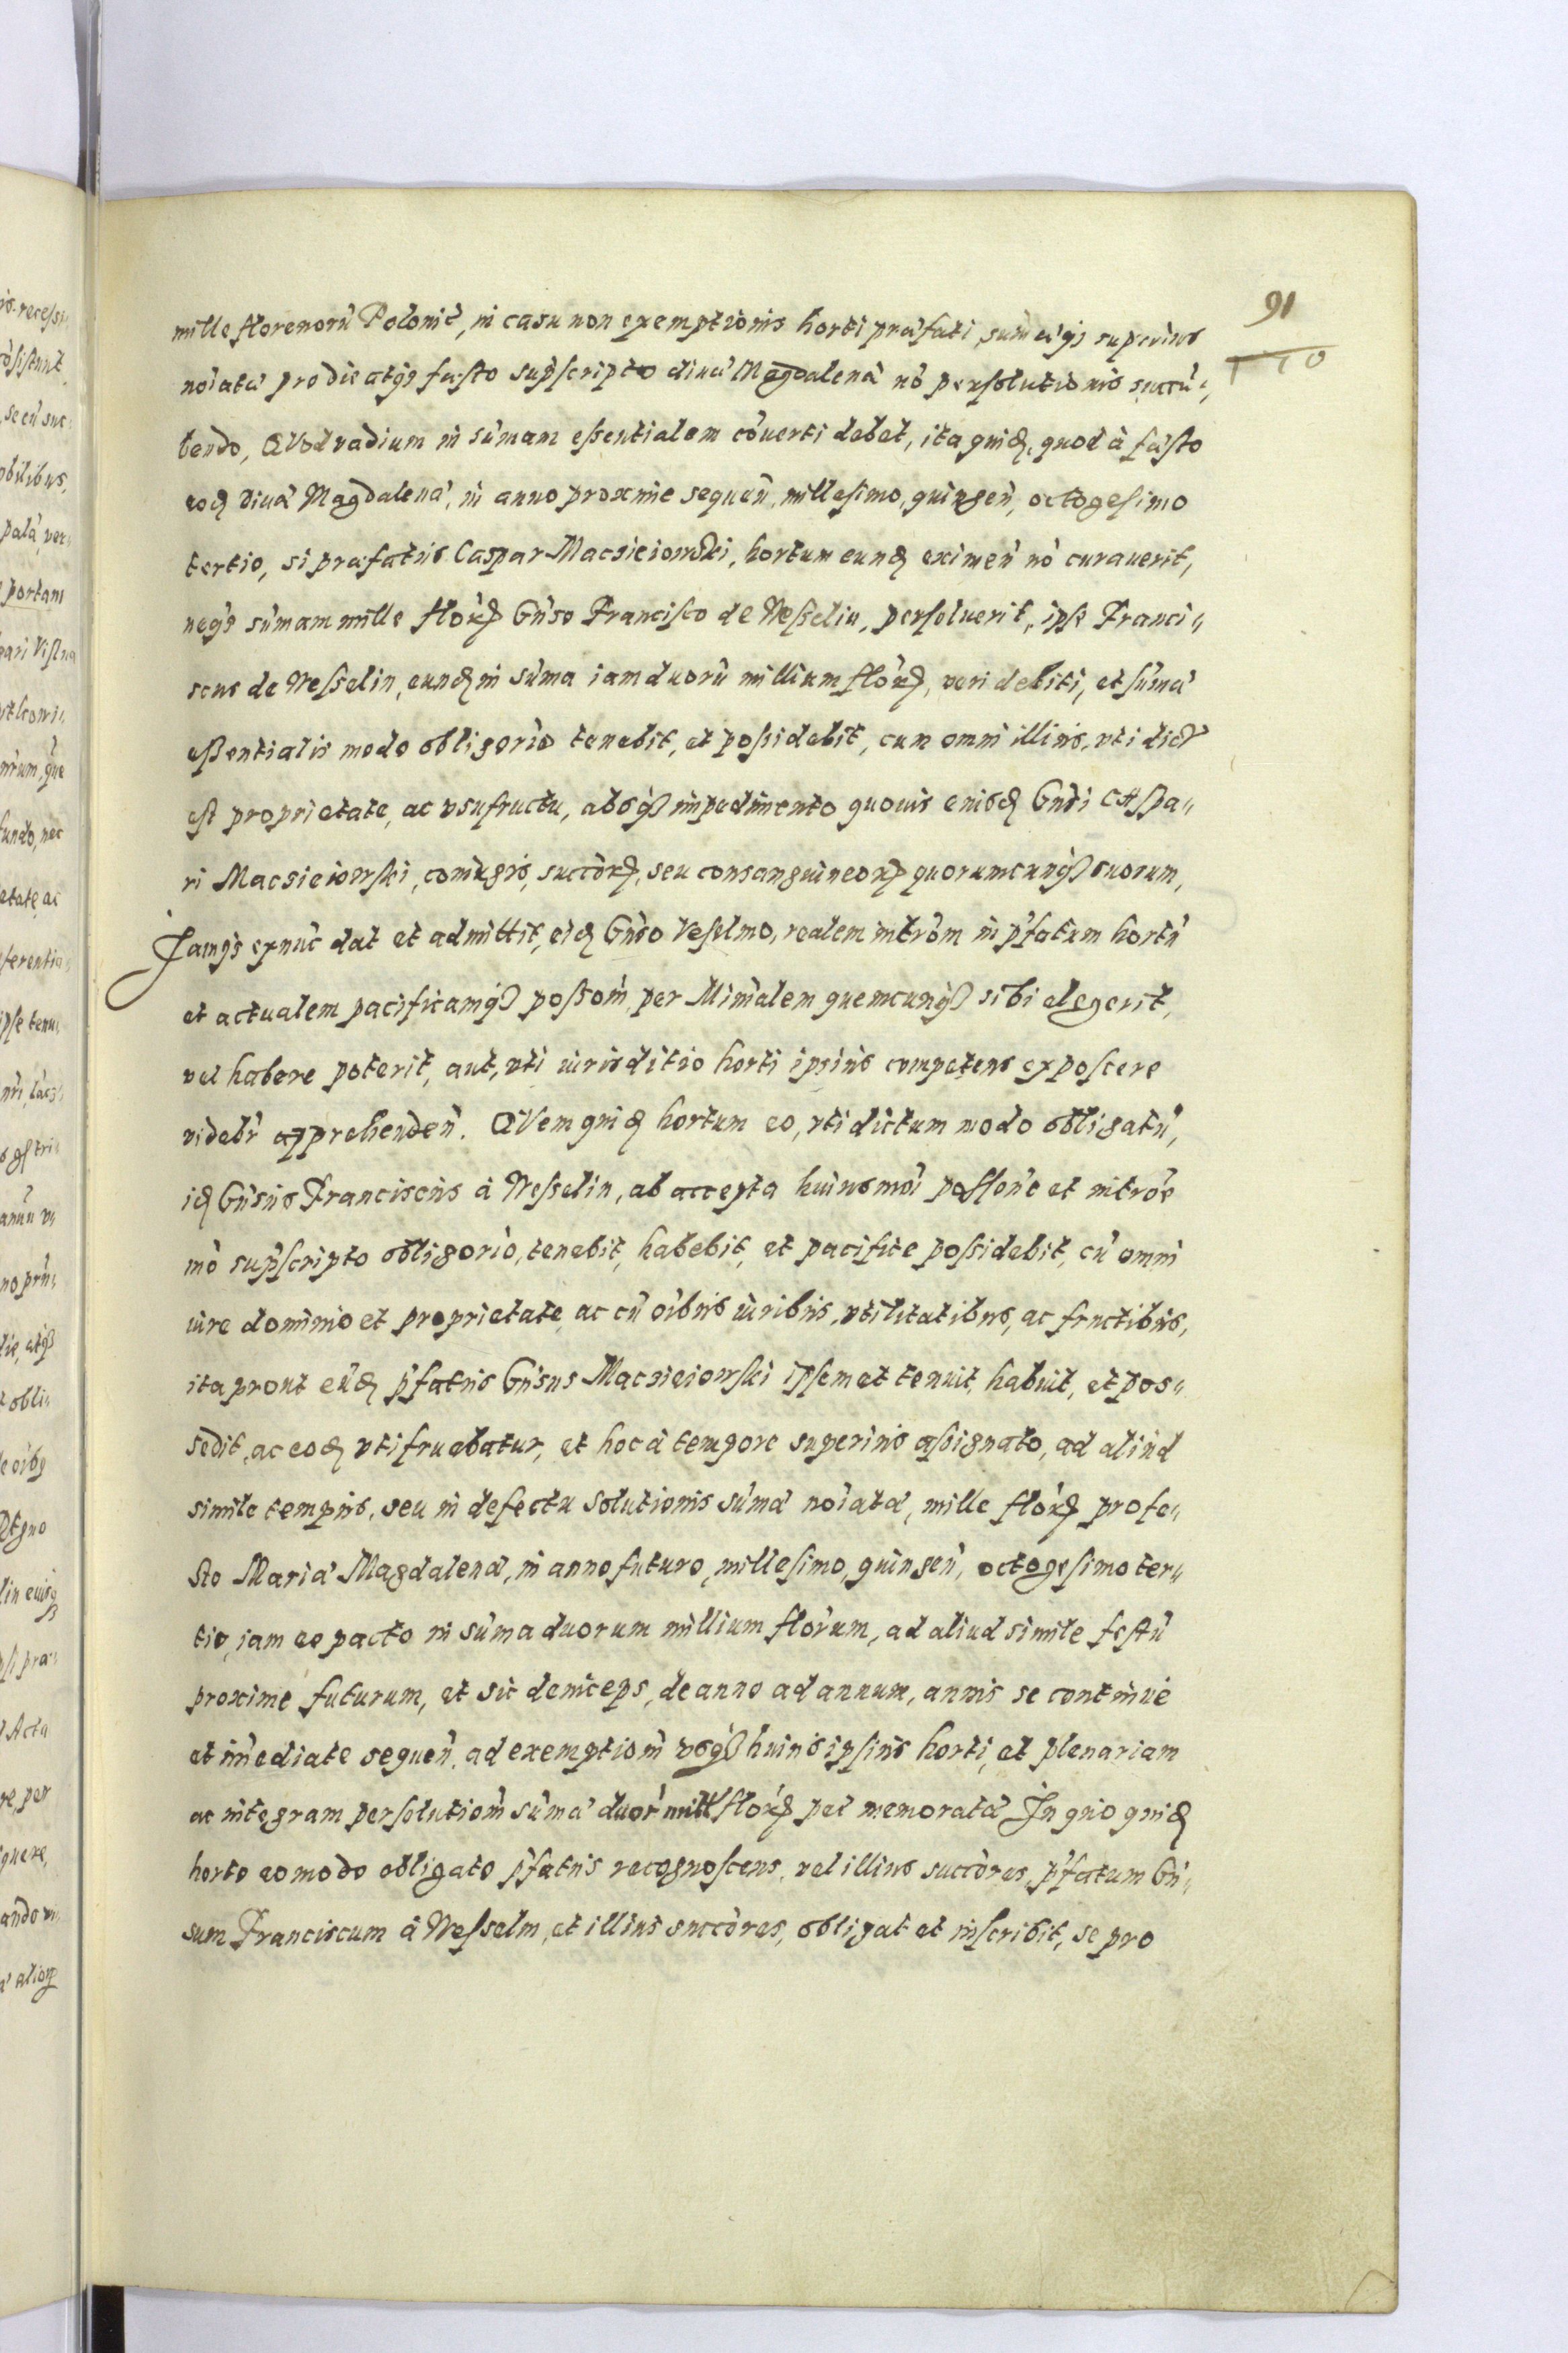 91
110
mille florenorũ Poloniẽ, in casu non exemptionis horti præfati, sum̃æqȝ superius
noĩatæ pro die atqȝ fæsto supscripto diuæ Magdalenæ nõ persolutionis succũ„
bendo, QVod vadium in sũmam essentialem cõuerti debet, ita quidẽ, quod à fæsto
eodẽ Diuæ Magdalenæ, in anno proxime sequeñ, millesimo, quingeñ, octogesimo
tertio, si præfatus Caspar Macsieiowski, hortum eundẽ eximeñ nõ curauerit,
neqȝ sũmam mille florꝝ Gñso Francisco de Wesselin, persoluerit, ipse Franci„
scus de Wesselin, eundẽ in sũma iam duorũ millium florꝝ, veri debiti, et sũmæ
essentialis modo obligorio tenebit, et possidebit, cum omni illius, vti dict̃
est proprietate, ac vsufructu, absqȝ impedimento quouis eiusdẽ Gñsi CAspa„
ri Macsieiowski, coniugis, succorꝝ, seu consanguineorꝝ quorumcunqȝ suorum,
Jamqȝ exnũc dat et admittit, eidẽ Gñso Veselino, realem intrõm in p̃fatum hortũ
et actualem pacificamqȝ possom̃, per Minĩalem quemcunqȝ sibi elegerit,
vel habere poterit, aut, vti iurisditio horti ipsius competens exposcere
videbr̃ apprehendeñ. QVem quidẽ hortum eo, vti dictum modo obligatũ,
idẽ Gñsus Franciscus à Wesselin, ab accepta huiusmõi possõne et intrõe
mõ supscripto obligorio, tenebit, habebit, et pacifice possidebit, cũ omni
iure dominio et proprietate, ac cũ oĩbus iuribus, vtilitatibus, ac fructibus,
ita prout eũdẽ p̃fatus Gñsus Macsieiowski ipsemet tenuit, habuit, et pos„
sedit, ac eodẽ vti fruebatur, et hoc à tempore superius assignato, ad aliud
simile tempus, seu in defectu solutionis sũmæ noĩatæ, mille florꝝ pro fe„
sto Mariæ Magdalenæ, in anno futuro, millesimo, quingeñ, octogesimo ter„
tio, iam eo pacto in sũma duorum millium florum, ad aliud simile festũ
proxime futurum, et sic deinceps, de anno ad annum, annis se continue
et im̃ediate sequeñ, ad exemptiom̃ vsqȝ huius ipsius horti, et plenariam
ac integram persolutiom̃ sũmæ duor mill florꝝ præmemoratæ In quo quidẽ
horto eo modo obligato p̃fatus recognoscens, vel illius succores, p̃fatum Gñ„
sum Franciscum à Wesselin, et illius succores, obligat et inscribit, se pro